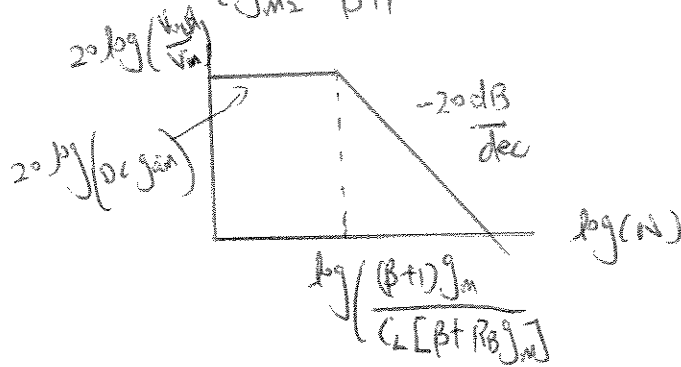 gm2 β+1
20 log(Vout/Vin)
-20dB/dec
20 log(DC gain)
log(ω)
log((β+1)gm/CL[β+RBgm])